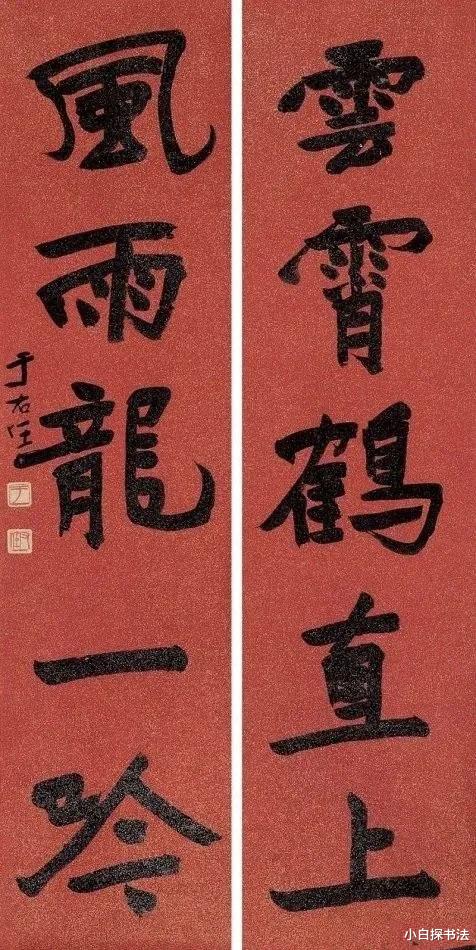 雲霄鶴直上
風雨龍一吟
于右任
小白探书法